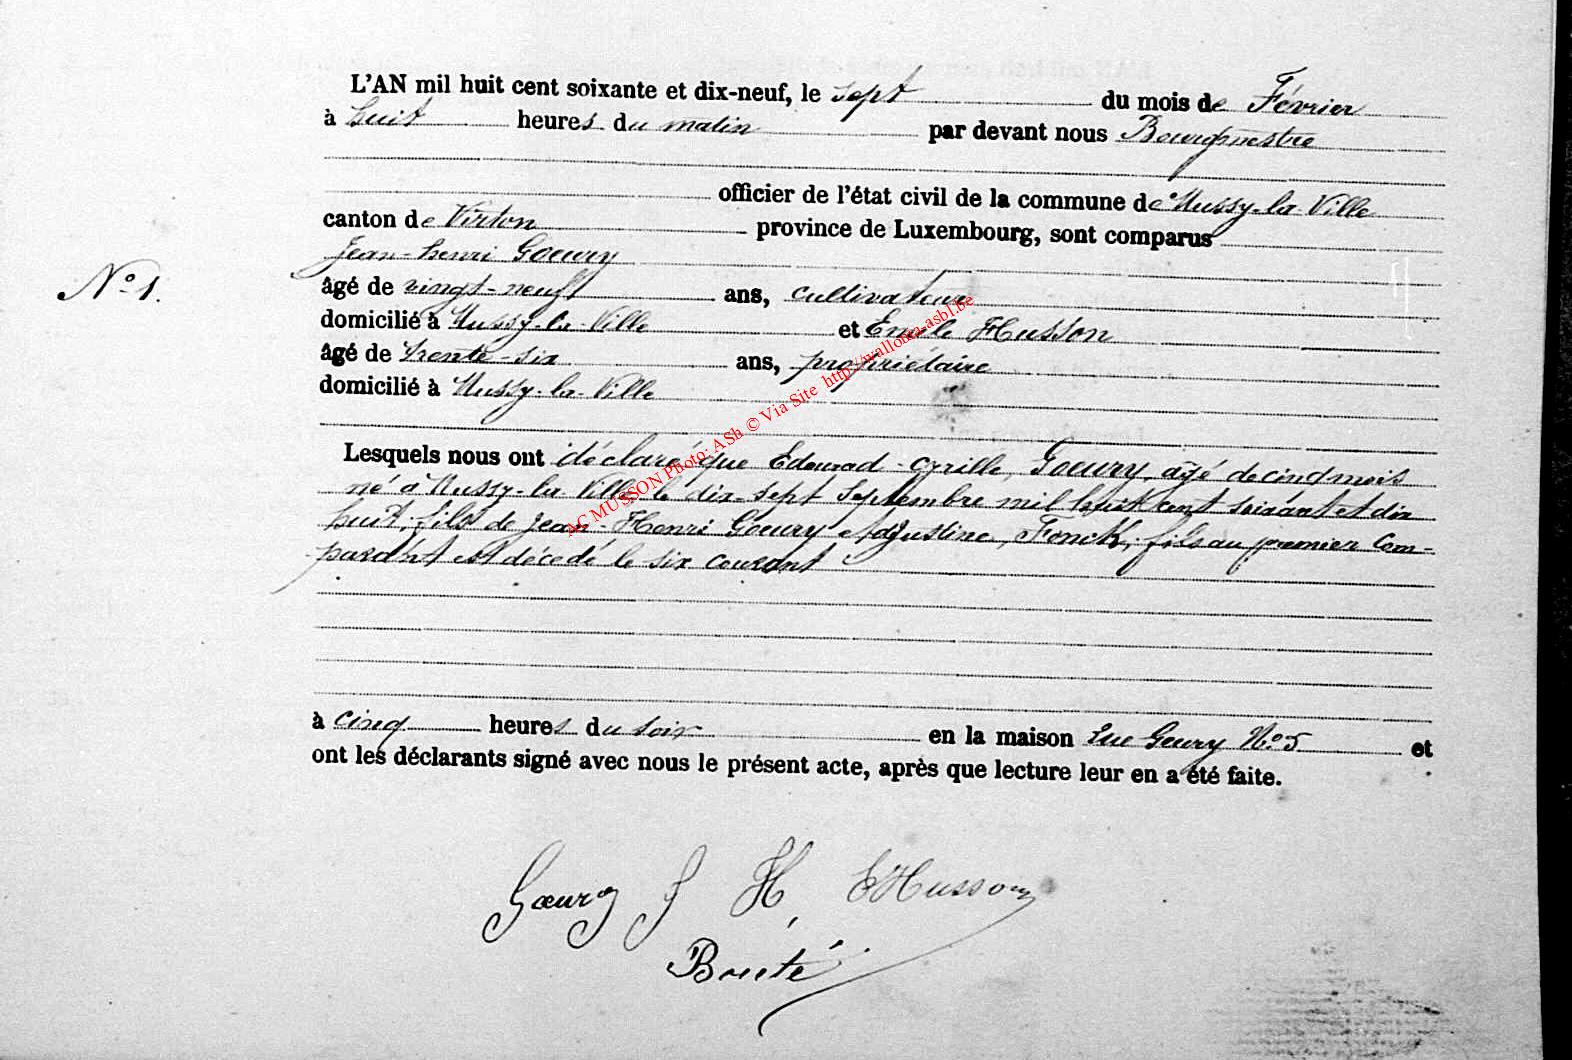 L'AN mil huit cent soixante et dix-neuf, le sept du mois de Février
à huit heures du matin par devant nous Bourgmestre
officier de l'état civil de la commune de Mussy-la-Ville
canton de Virton province de Luxembourg, sont comparus
Jean-henri Goeury
N° 1.
âgé de vingt-neuf ans, cultivateur
domicilié à Mussy-la-Ville et Emile Husson
âgé de trente-six ans, propriétaire
domicilié à Mussy-la-Ville
Lesquels nous ont déclaré que Edourad-cyrille, Goeury, agé de cinq mois
né à Mussy-la-Ville le dix-sept Septembre mil huit cent soixant et dix
huit, fils de Jean-Henri Goeury et Agustine, Fonck, fils au premier Com-
parant est décédé le six courant
à cinq heures du soir en la maison Goury N° 5 et
ont les déclarants signé avec nous le présent acte, après que lecture leur en a été faite.
Goeury J H, E Husson
AC MUSSON Photo: ASh © Via Site http://wallonia-asbl.be